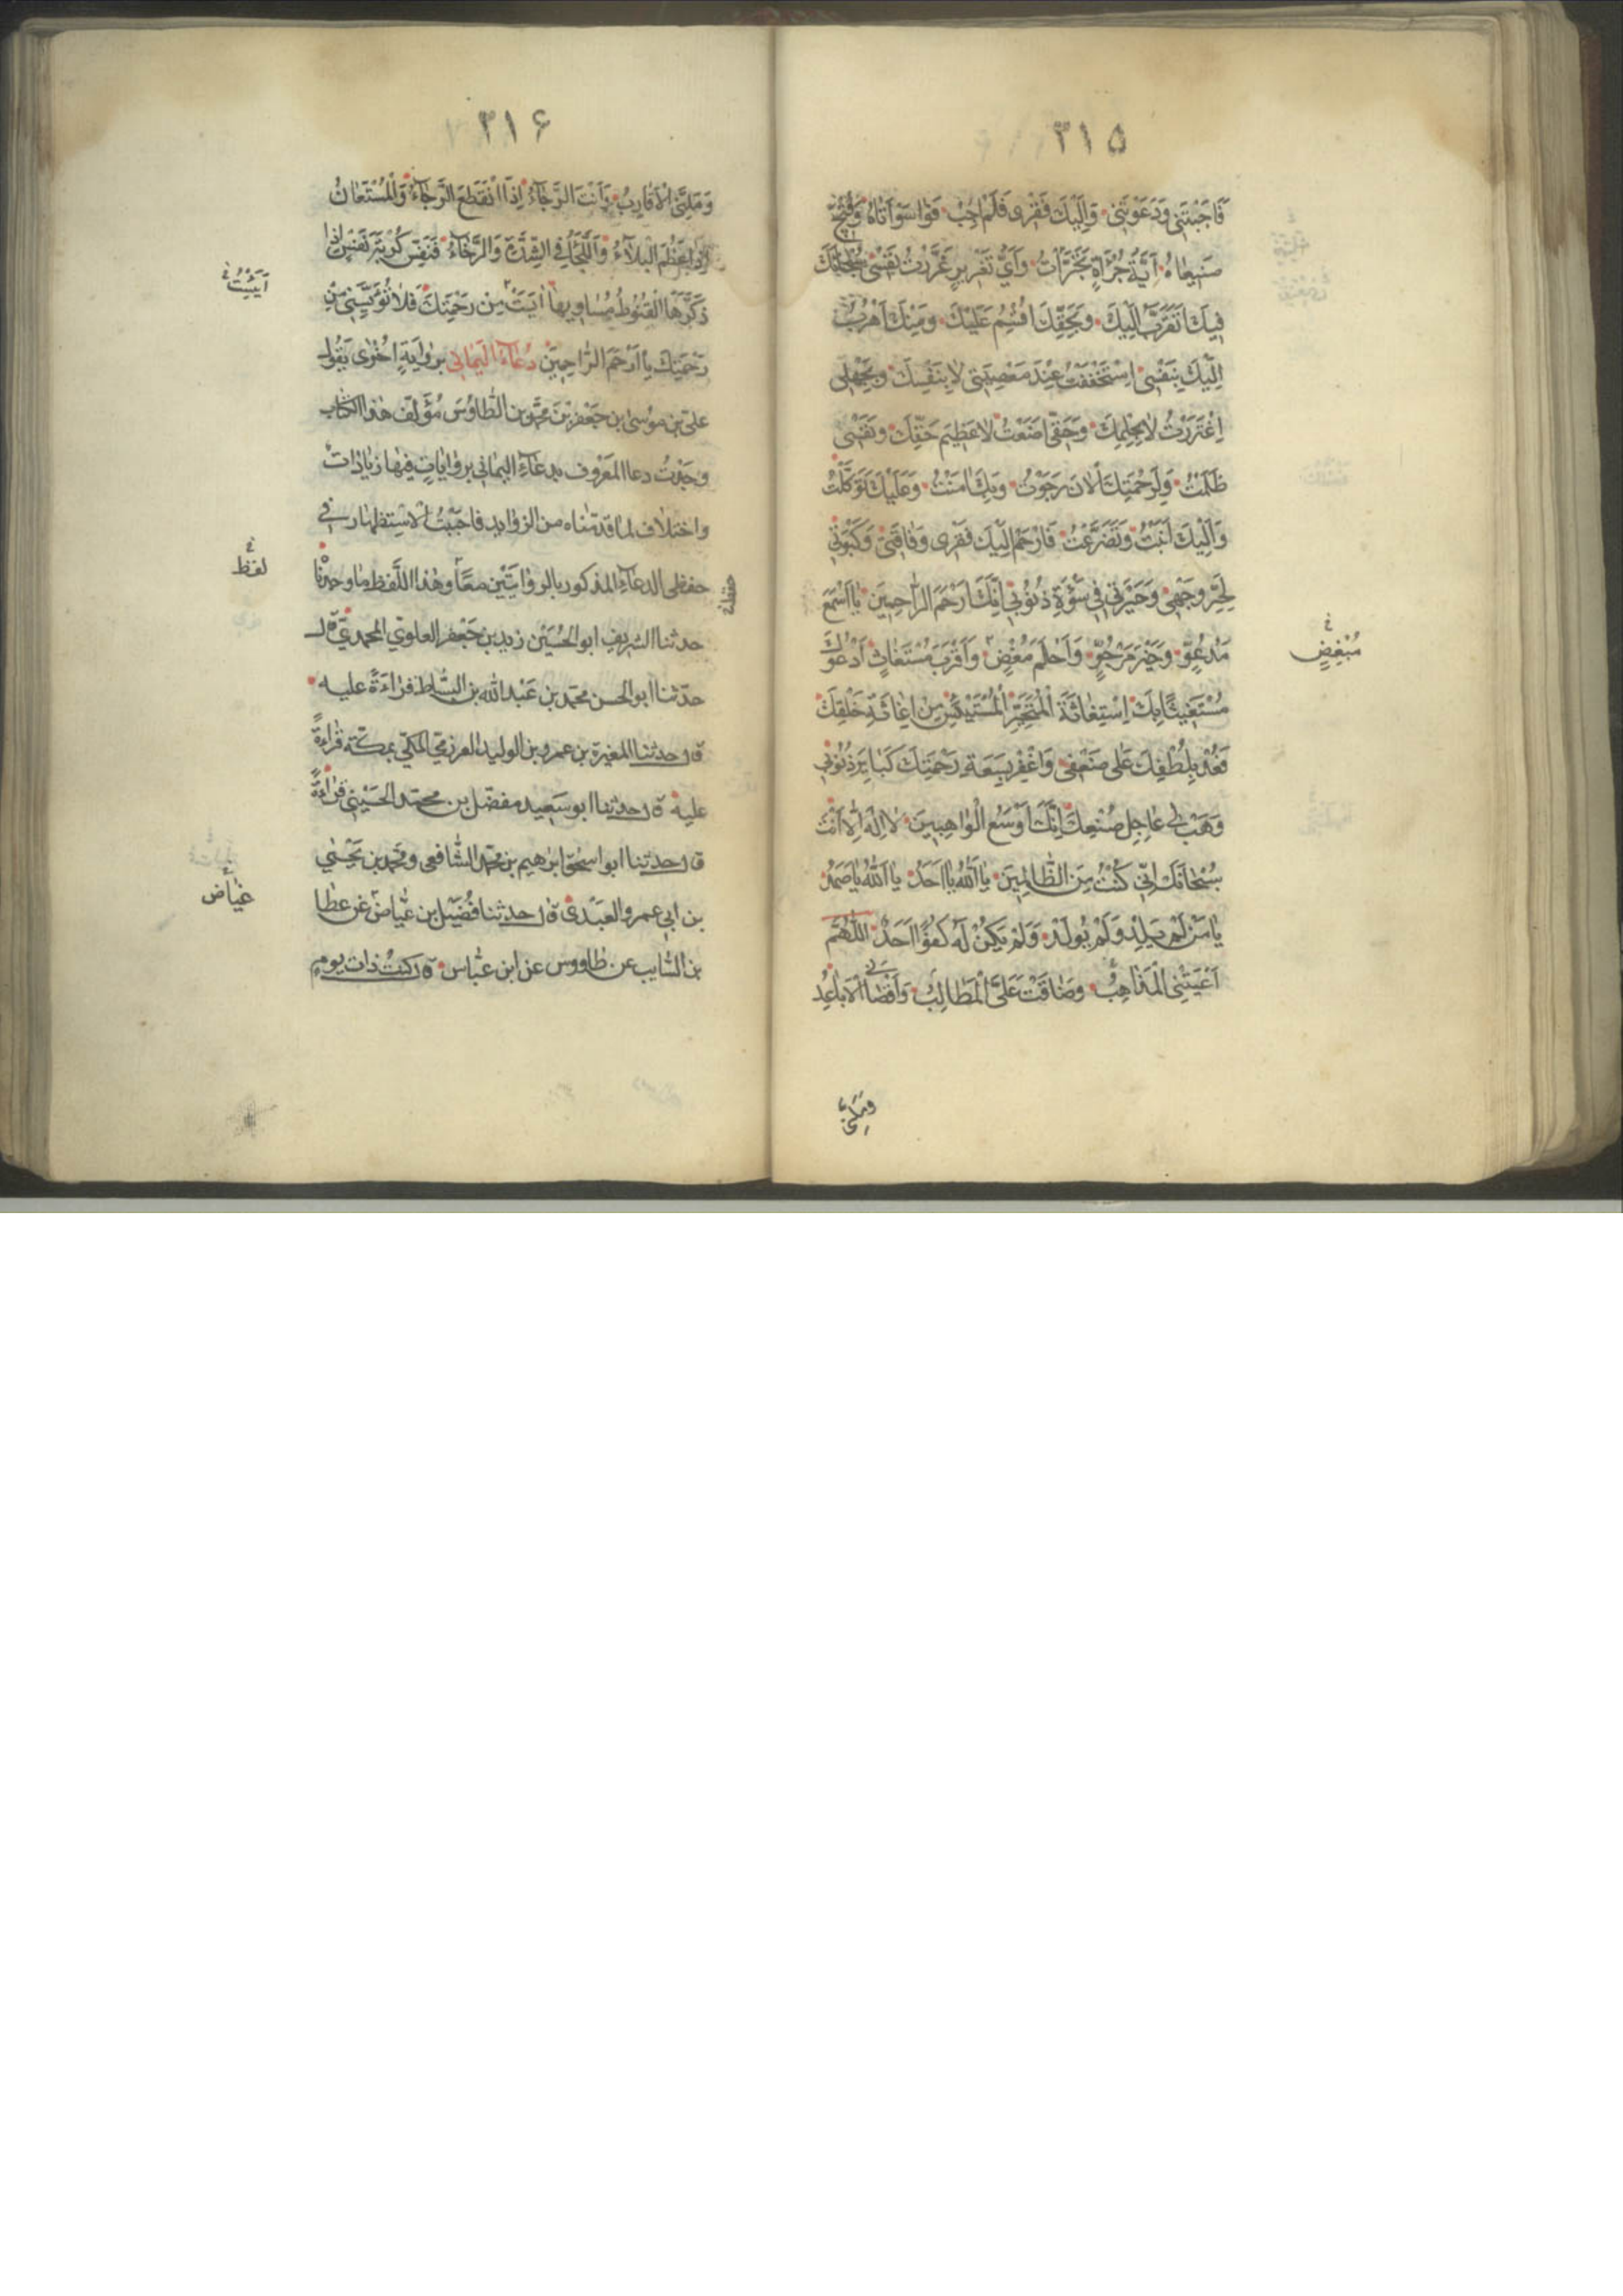 ٣١٥
فَاَجَبْتَنِي وَدَعَوْتَنِي وَاِلَيْكَ فَقْرِي فَلَمْ اُجِبْ فَوَاسَوْاَتَاهُ وَقُبْحَ
صَنِيعَاهُ اَيَّةُ جُرْاَةٍ تَجَرَّاْتُ وَاَيُّ تَغْرِيرٍ غَرَّرْتُ نَفْسِي سُبْحَانَكَ
فَبِكَ اَتَقَرَّبُ اِلَيْكَ وَبِحَقِّكَ اُقْسِمُ عَلَيْكَ وَمِنْكَ اَهْرُبُ
اِلَيْكَ بِنَفْسِي اسْتَخْفَفْتُ عِنْدَ مَعْصِيَتِي لَا بِنَفْسِكَ وَبِجَهْلِي
اِغْتَرَرْتُ لَا بِحِلْمِكَ وَحَقِّي اَضَعْتُ لَا عَظِيمَ حَقِّكَ وَنَفْسِي
ظَلَمْتُ وَلِرَحْمَتِكَ الْاٰنَ رَجَوْتُ وَبِكَ اٰمَنْتُ وَعَلَيْكَ تَوَكَّلْتُ
وَاِلَيْكَ اَنَبْتُ وَتَضَرَّعْتُ فَارْحَمْ اِلَيْكَ فَقْرِي وَفَاقَتِي وَكَبْوَتِي
لِحُرِّ وَجْهِي وَحَيْرَتِي فِي سَوْءَةِ ذُنُوبِي اِنَّكَ اَرْحَمُ الرَّاحِمِينَ يَا اَسْمَعَ
مَدْعُوٍّ وَخَيْرَ مَرْجُوٍّ وَاَحْلَمَ مُغْضٍ وَاَقْرَبَ مُسْتَغَاثٍ اَدْعُوكَ
مُبْغِضٍ
مُسْتَغِيثًا بِكَ اسْتِغَاثَةَ الْمُتَحَيِّرِ الْمُسْتَيْئِسِ مِنْ اِغَاثَةِ خَلْقِكَ
فَعُدْ بِلُطْفِكَ عَلَى ضَعْفِي وَاغْفِرْ بِسَعَةِ رَحْمَتِكَ كَبَائِرَ ذُنُوبِي
وَهَبْ لِي عَاجِلَ صُنْعِكَ اِنَّكَ اَوْسَعُ الْوَاهِبِينَ لَا اِلٰهَ اِلَّا اَنْتَ
سُبْحَانَكَ اِنِّي كُنْتُ مِنَ الظَّالِمِينَ يَا اَللّٰهُ يَا اَحَدُ يَا اَللّٰهُ يَا صَمَدُ
يَا مَنْ لَمْ يَلِدْ وَلَمْ يُولَدْ وَلَمْ يَكُنْ لَهُ كُفُوًا اَحَدٌ اَللّٰهُمَّ
اَعْيَتْنِي الْمَذَاهِبُ وَضَاقَتْ عَلَيَّ الْمَطَالِبُ وَاَقْصَانِي الْاَبَاعِدُ
وَمَلَّنِي
٣١۶
وَمَلَّنِي الْاَقَارِبُ وَاَنْتَ الرَّجَاءُ اِذَا انْقَطَعَ الرَّجَاءُ وَالْمُسْتَعَانُ
اِذَا عَظُمَ الْبَلَاءُ وَاللَّجَاُ فِي الشِّدَّةِ وَالرَّخَاءِ فَنَفِّسْ كُرْبَةَ نَفْسٍ اِذَا
ذَكَّرَهَا الْقُنُوطُ مَسَاوِيهَا اَيِسَتْ مِنْ رَحْمَتِكَ فَلَا تُؤْيِسْنِي مِنْ
رَحْمَتِكَ يَا اَرْحَمَ الرَّاحِمِينَ دُعَاءُ الْيَمَانِي بِرِوَايَةٍ اُخْرٰى يَقُولُ
علي بن موسى بن جعفر بن محمد بن الطاوس مؤلف هذا الكتاب
وجدت دعا المعروف بدعاء اليماني بروايات فيها زيادات
واختلاف لما قدمناه من الزوايد فاحببت الاستظهار في
حفظي الدعاء المذكور بالروايتين معًا وهذا اللفظ ما وجدنا
لفظ
حفظه
حدثنا الشريف ابو الحسين زيد بن جعفر العلوي المحمدي قال
حدثنا ابو الحسن محمد بن عبد الله بن البساط قراءة عليه
قال حدثنا المغيرة بن عمرو بن الوليد العرزمي المكي بمكة قراءةً
عليه قال حدثنا ابو سعيد مفضل بن محمد الحسيني قراءةً
قال حدثنا ابو اسحق ابرهيم بن محمد الشافعي ومحمد بن يحيى
بن ابي عمرو العبدي قال حدثنا فضيل بن عياض عن عطا
غياض
بن السايب عن طاووس عن ابن عباس قال كنت ذات يوم